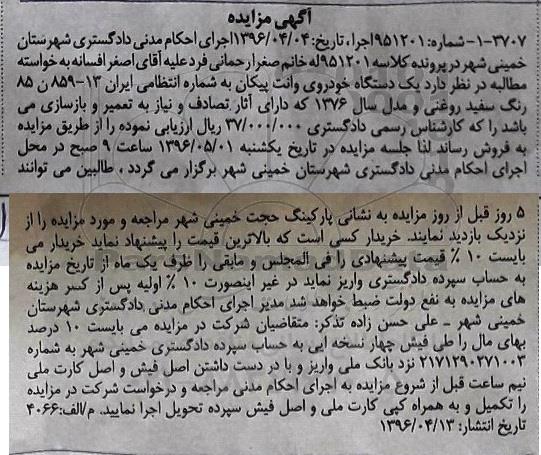 آگهی مزایده
۳۷۰۷-۱-شماره: ۹۵۱۲۰۱اجرا، تاریخ: ۱۳۹۶/۰۴/۰۴اجرای احکام مدنی دادگستری شهرستان
خمینی شهر در پرونده کلاسه ۹۵۱۲۰۱له خانم صغرا رحمانی فرد علیه آقای اصغر افسانه به خواسته
مطالبه در نظر دارد یک دستگاه خودروی وانت پیکان به شماره انتظامی ایران ۱۳-۸۵۹ ن ۸۵
رنگ سفید روغنی و مدل سال ۱۳۷۶ که دارای آثار تصادف و نیاز به تعمیر و بازسازی می
باشد را که کارشناس رسمی دادگستری ۳۷/۰۰۰/۰۰۰ ریال ارزیابی نموده را از طریق مزایده
به فروش رساند لذا جلسه مزایده در تاریخ یکشنبه ۱۳۹۶/۰۵/۰۱ ساعت ۹ صبح در محل
اجرای احکام مدنی دادگستری شهرستان خمینی شهر برگزار می گردد ، طالبین می توانند
۵ روز قبل از روز مزایده به نشانی پارکینگ حجت خمینی شهر مراجعه و مورد مزایده را از
نزدیک بازدید نمایند. خریدار کسی است که بالاترین قیمت را پیشنهاد نماید خریدار می
بایست ۱۰ ٪ قیمت پیشنهادی را فی المجلس و مابقی را ظرف یک ماه از تاریخ مزایده
به حساب سپرده دادگستری واریز نماید در غیر اینصورت ۱۰ ٪ اولیه پس از کسر هزینه
های مزایده به نفع دولت ضبط خواهد شد مدیر اجرای احکام مدنی دادگستری شهرستان
خمینی شهر ـ علی حسن زاده تذکر: متقاضیان شرکت در مزایده می بایست ۱۰ درصد
بهای مال را طی فیش چهار نسخه ایی به حساب سپرده دادگستری خمینی شهر به شماره
۲۱۷۱۲۹۰۲۷۱۰۰۳ نزد بانک ملی واریز و با در دست داشتن اصل فیش و اصل کارت ملی
نیم ساعت قبل از شروع مزایده به اجرای احکام مدنی مراجعه و درخواست شرکت در مزایده
را تکمیل و به همراه کپی کارت ملی و اصل فیش سپرده تحویل اجرا نمایید. م/الف:۴۰۶۶
تاریخ انتشار: ۱۳۹۶/۰۴/۱۳